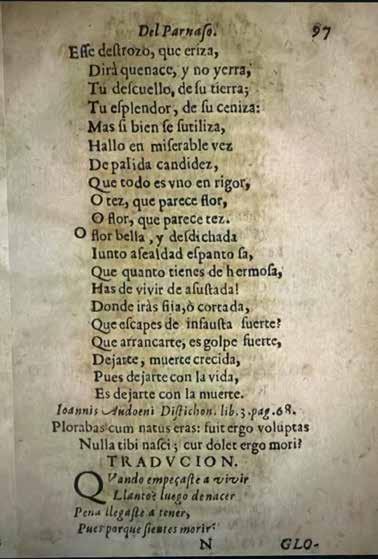 Del Parnaſo. 97
Eſſe deſtrozo, que eriza,
Dirà quenace, y no yerra,
Tu deſcuello, de ſu tierra;
Tu eſplendor, de ſu ceniza:
Mas ſi bien ſe ſutiliza,
Hallo en miſerable vez
De palida candidez,
Que todo es vno en rigor,
O tez, que parece flor,
O flor, que parece tez.
O flor bella, y deſdichada
Iunto aſealdad eſpanto ſa,
Que quanto tienes de hermoſa,
Has de vivir de aſuſtada!
Donde iràs fiia, ò cortada,
Que eſcapes de infauſta ſuerte?
Que arrancarte, es golpe fuerte,
Dejarte, muerte crecida,
Pues dejarte con la vida,
Es dejarte con la muerte.
Ioannis Audoeni Diſtichon. lib. 3. pag. 68.
Plorabas cum natus eras: fuit ergo voluptas
Nulla tibi naſci; cur dolet ergo mori?
TRADVCION.
QVando empeçaſte a vivir
Llantoè luego denacer
Pena llegaſte a tener,
Pues porque ſientes morir?
N GLO-